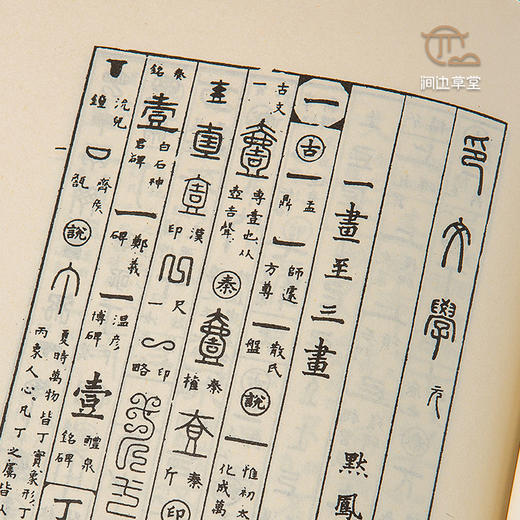 涧边草堂
印文學 元
默鳳
一畫至三畫
一 古 一 盂鼎 一 師遽方尊 一 散氏盤 說 一 惟初太 化成萬
古文一 壹 專壹也从壺吉聲 秦 壹 秦權 壹 秦斤 印
壹 壹 壹 漢印 尺 一印 略
秦銘 壹 白石神君碑 一 鄭羲碑 一 溫彥博碑 壹 醴泉銘碑 丁
沇兒鐘 齊侯 說 夏時萬物皆丁實象形丁 丙象人心凡丁之屬皆从